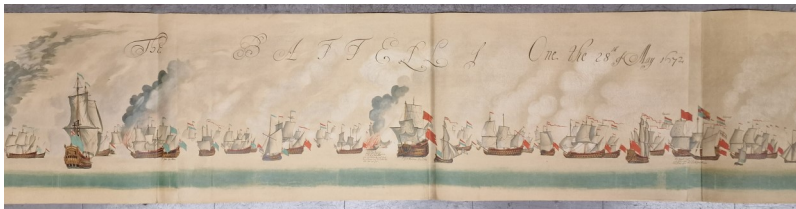 The BATTELL One the 28th of May 1672